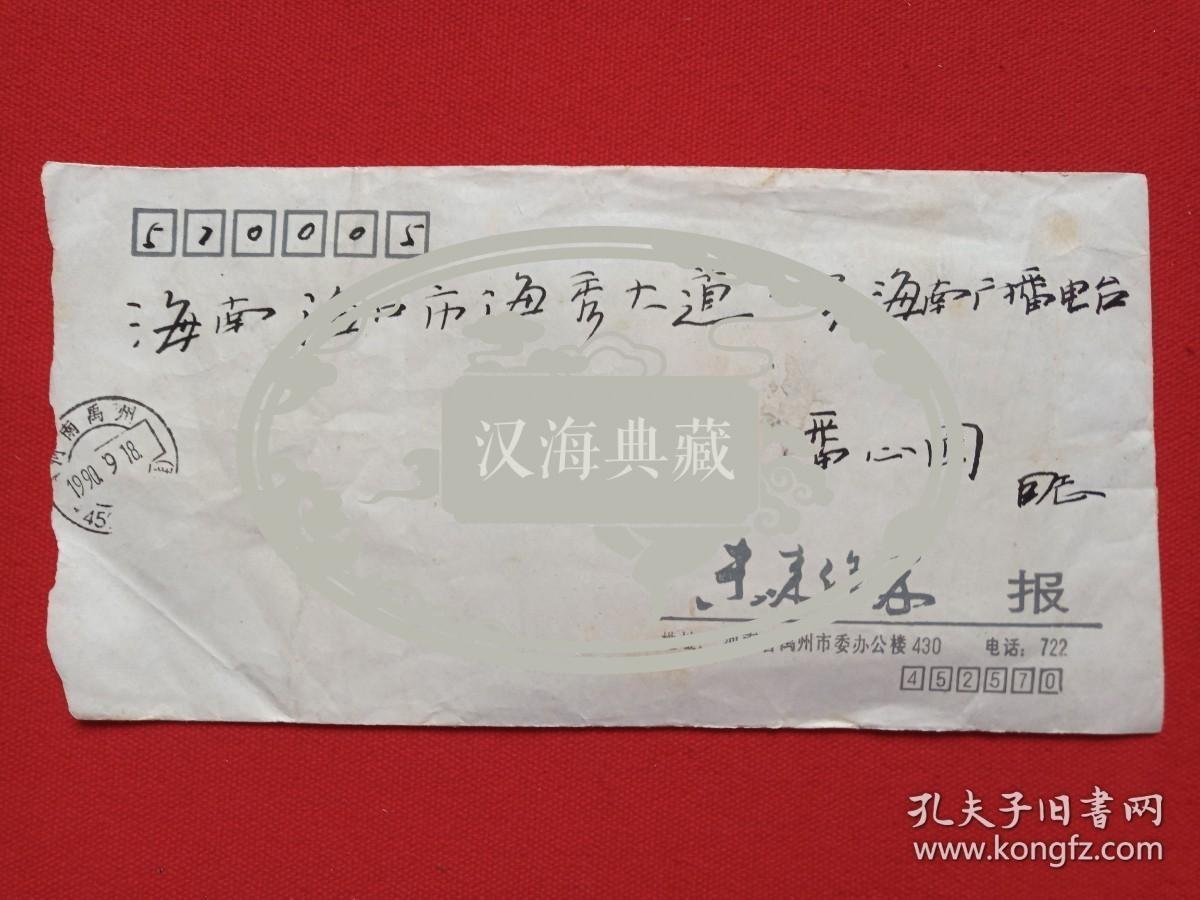 570005
海南海口市海秀大道 号 海南广播电台
同志
河南禹州
1990.9.18.
45
汉海典藏
未来作家 报
禹州市委办公楼430 电话：722
452570
孔夫子旧书网
www.kongfz.com